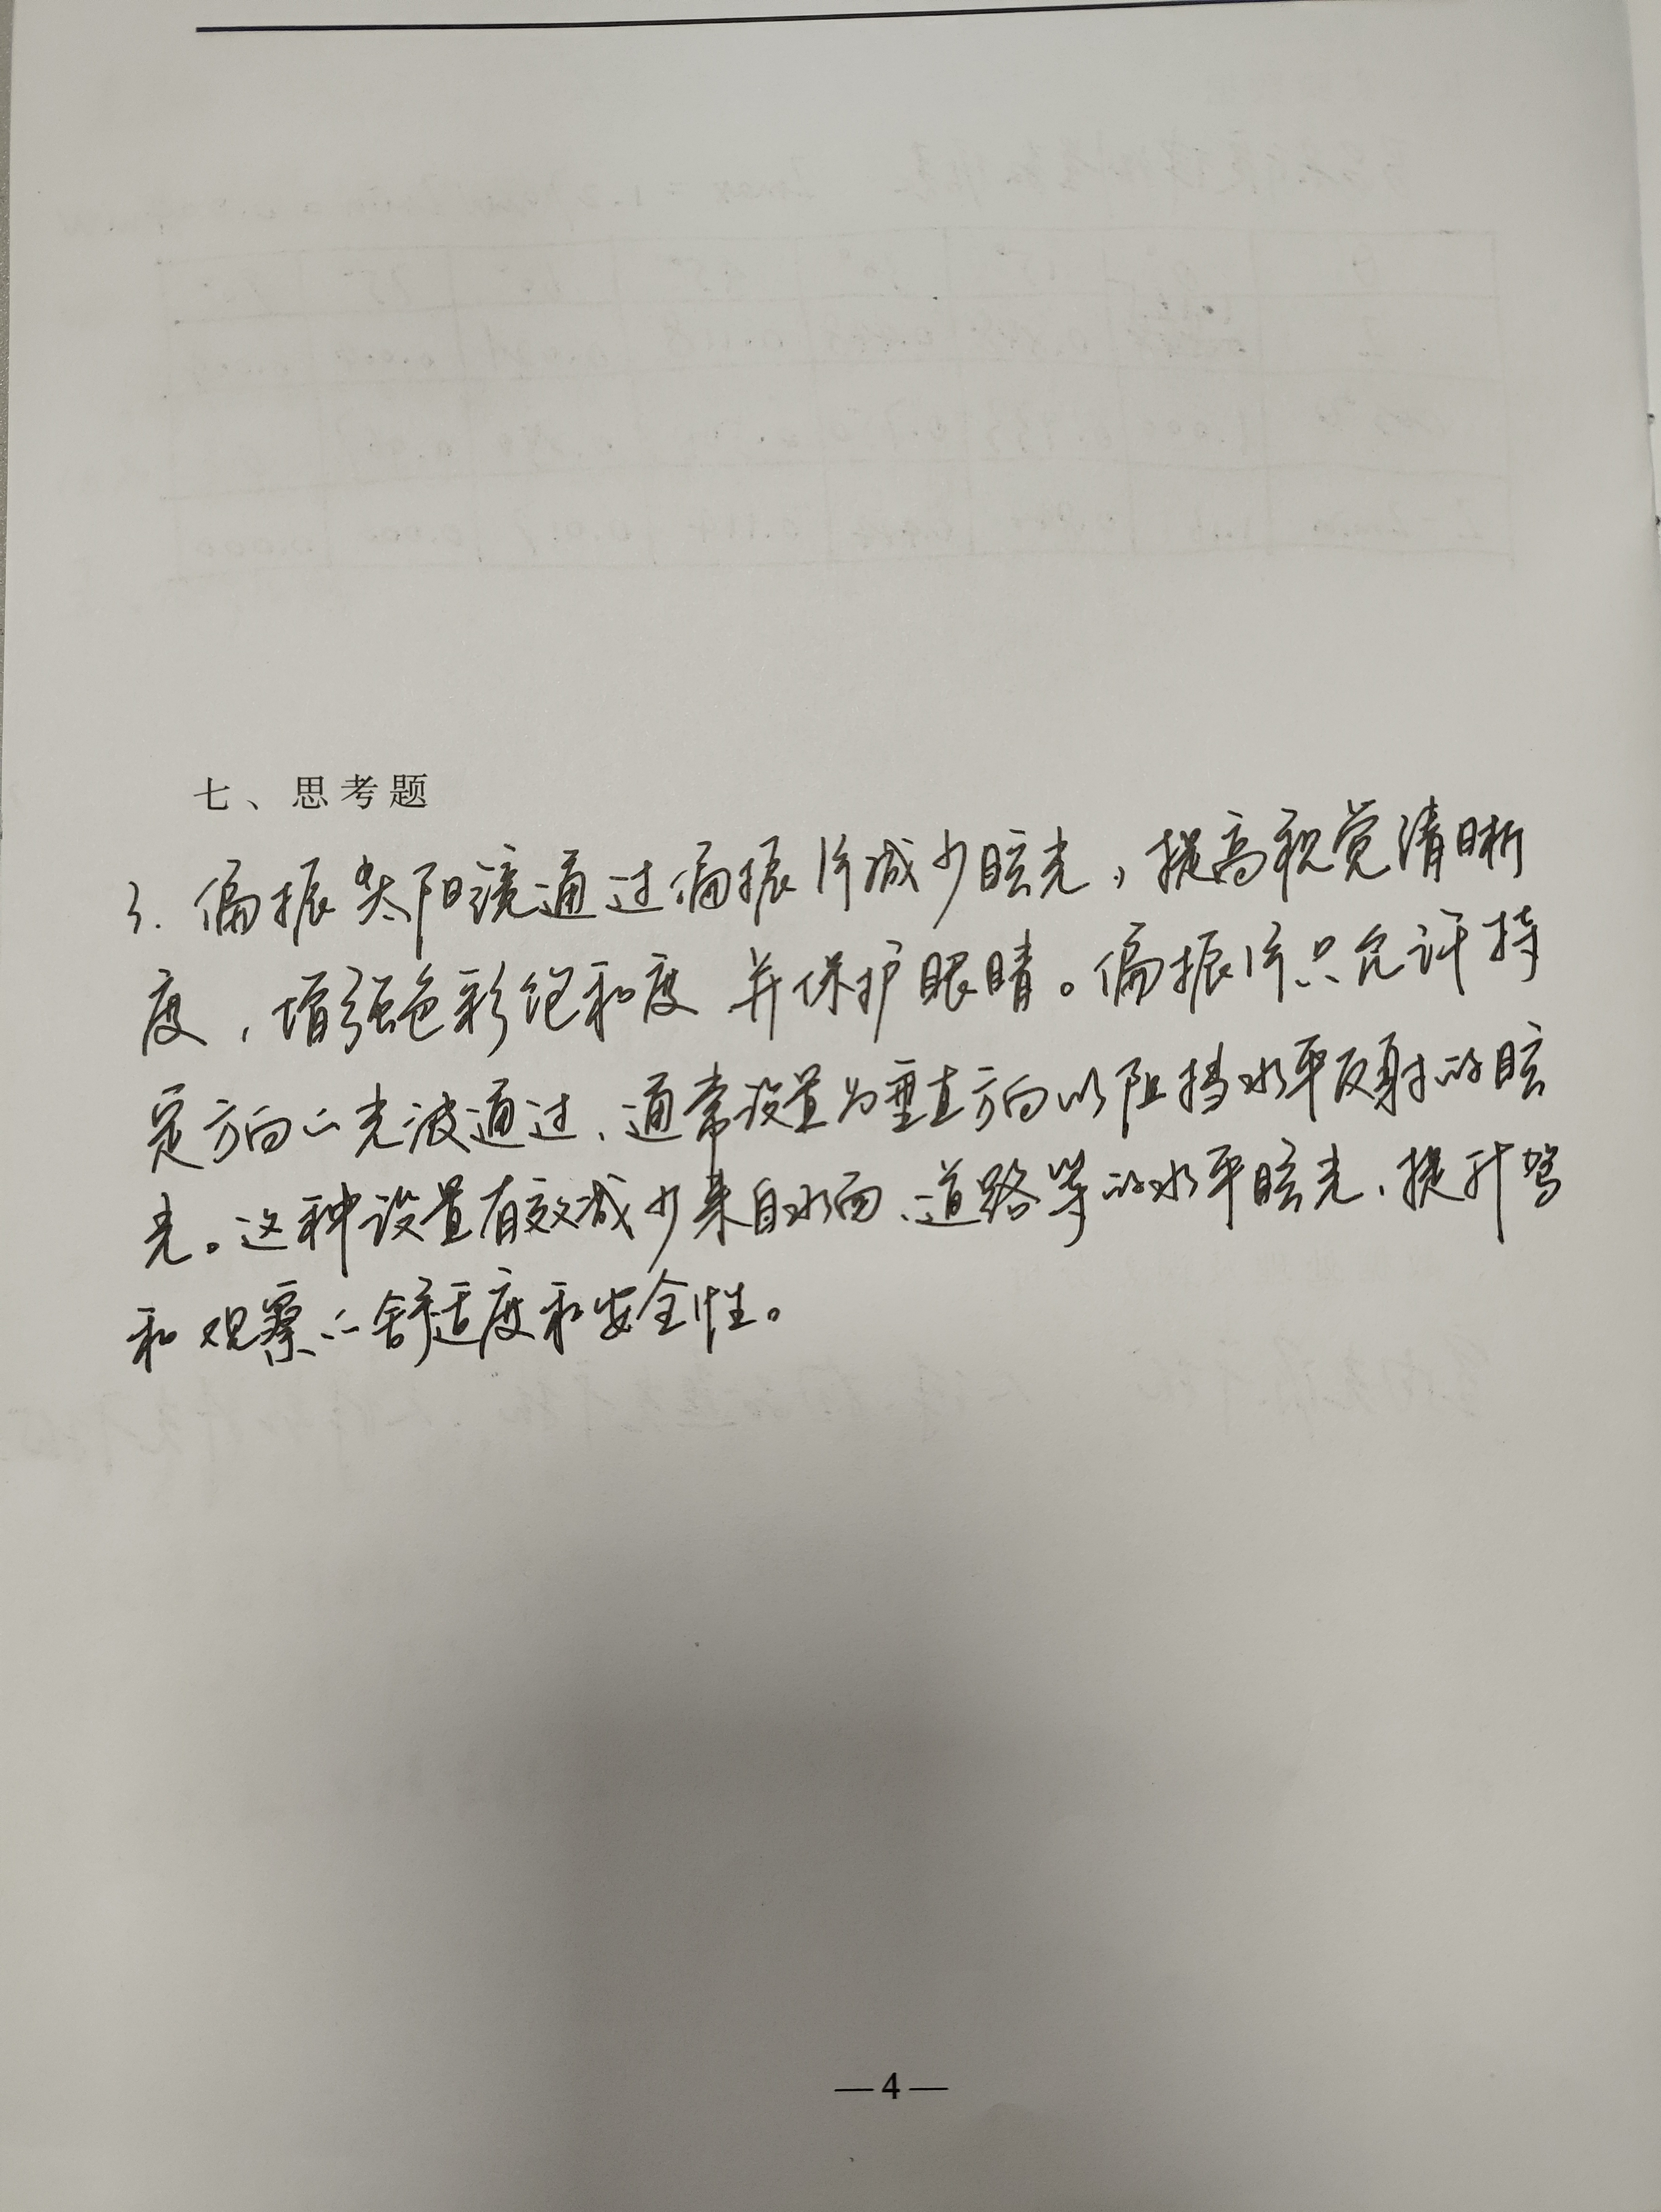 七、思考题
3. 偏振太阳镜通过偏振片减少眩光，提高视觉清晰
度，增强色彩饱和度并保护眼睛。偏振片只允许持
定方向的光波通过、通常设置为垂直方向以阻挡水平反射的眩
光。这种设置有效减少来自水面、道路等的水平眩光、提升驾
和观察的舒适度和安全性。
—4—